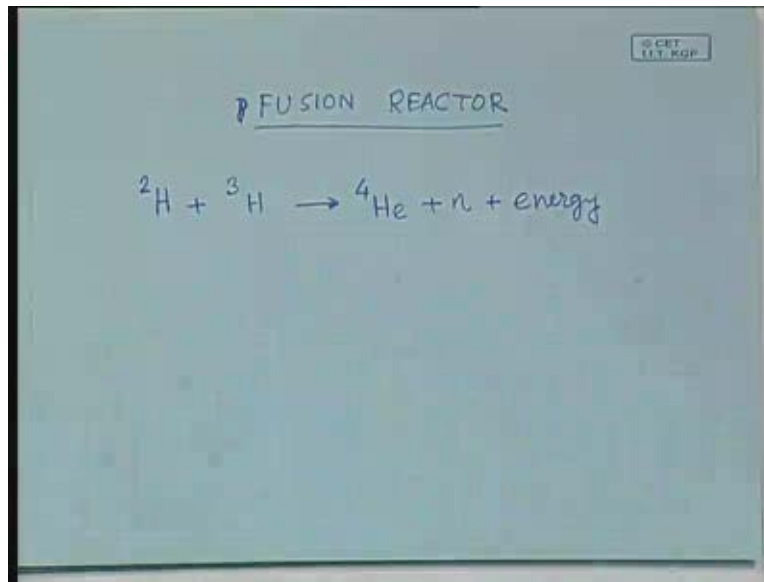 © CET
I.I.T. KGP
FUSION REACTOR
²H + ³H → ⁴He + n + energy